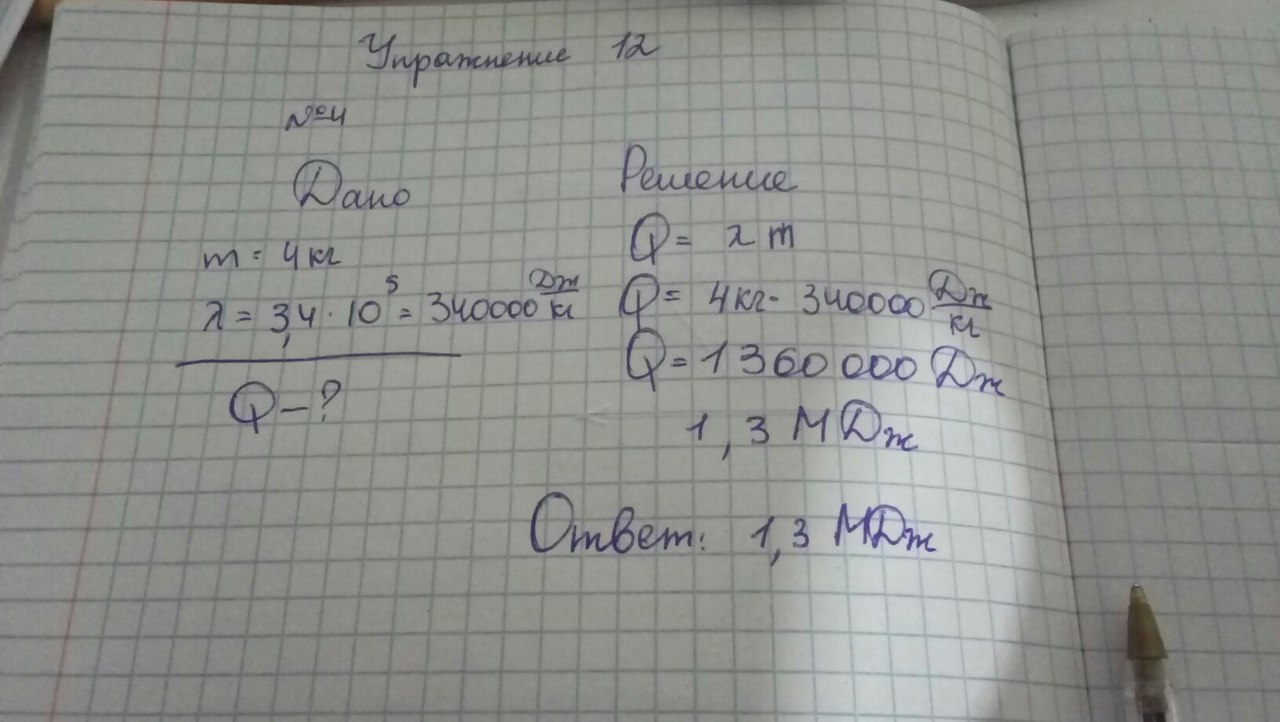 Упражнение 12
№4
Дано
m = 4 кг
λ = 3,4 · 10⁵ = 340000 Дж/кг
Q – ?
Решение
Q = λ m
Q = 4 кг · 340000 Дж/кг
Q = 1 360 000 Дж
1,3 МДж
Ответ: 1,3 МДж